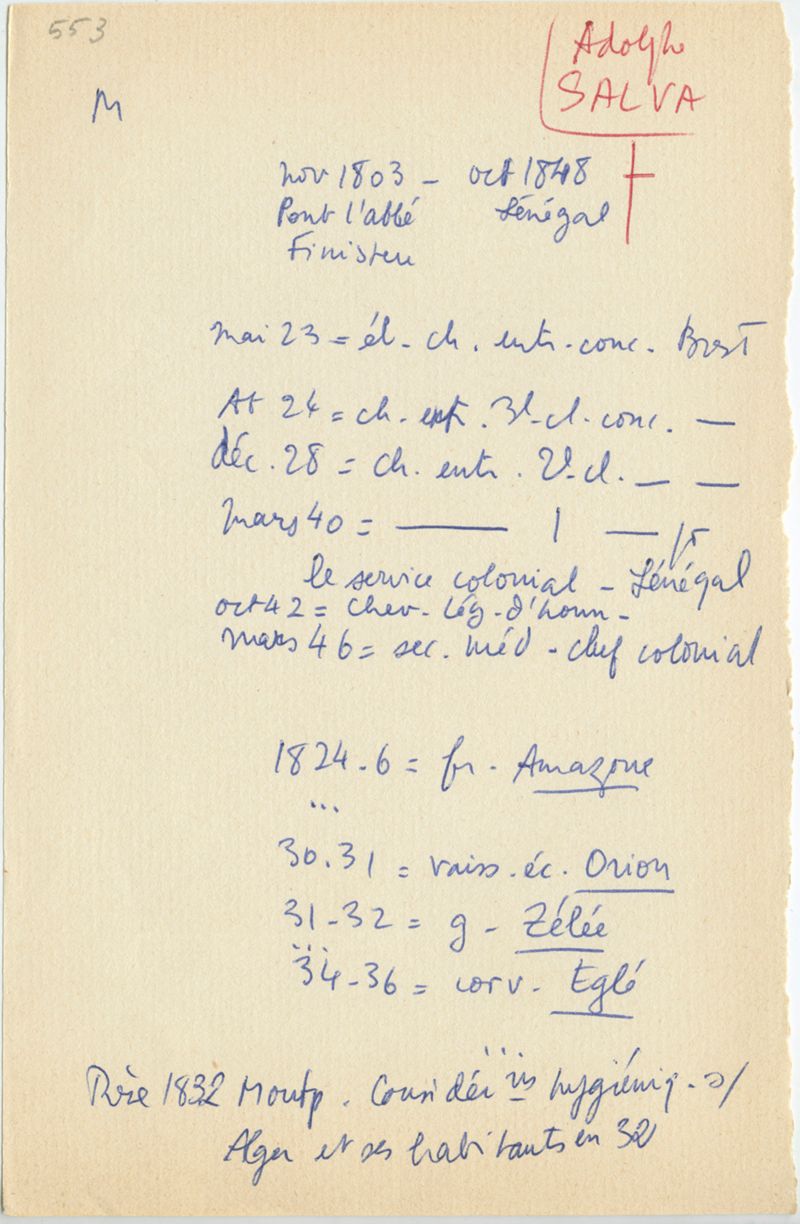 553
Adolphe
SALVA
M
nov 1803 - oct 1848
Pont l'abbé Sénégal
Finistere
mai 23 = él. ch. entr. conc. Brest
At 24 = ch. entr. 3e cl. conc. —
déc. 28 = ch. entr. 2e cl. — —
mars 40 = — 1 — pr
le service colonial - Sénégal
oct 42 = chev. Lég. d'honn.
mars 46 = sec. méd. chef colonial
1824.6 = fr. Amazone
...
30.31 = vaiss. éc. Orion
31-32 = g - Zélée
...
34-36 = corv. Eglé
1832 Montp. Considér ns hygiéniq. s/
Alger et ses habitants en 32